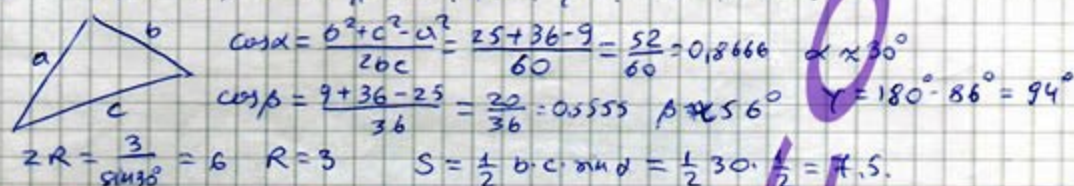 a b c
cosα = (b²+c²-a²)/(2bc) = (25+36-9)/60 = 52/60 = 0,8666 α ≈ 30°
cosβ = (9+36-25)/36 = 20/36 = 0,5555 β ≈ 56° γ = 180° - 86° = 94°
2R = 3/sin30° = 6 R = 3 S = 1/2 b·c·sin α = 1/2 30 · 1/2 = 7.5.